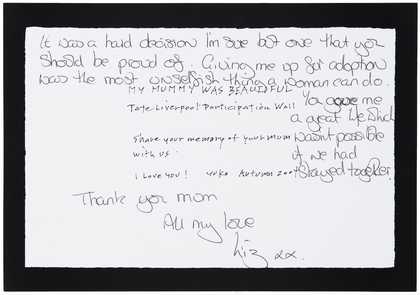 It was a hard decision I'm sure but one that you
should be proud of. Giving me up for adoption
was the most unselfish thing a woman can do.
MY MUMMY WAS BEAUTIFUL
Tate Liverpool Participation Wall
You gave me
a great life which
Share your memory of your mum
with us.
wasn't possible
if we had
stayed together.
I love you! yoko Autumn 2004
Thank you mom
All my love
Liz xx.